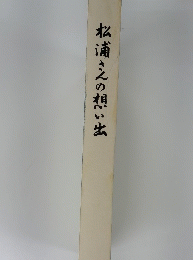 松浦さんの想い出